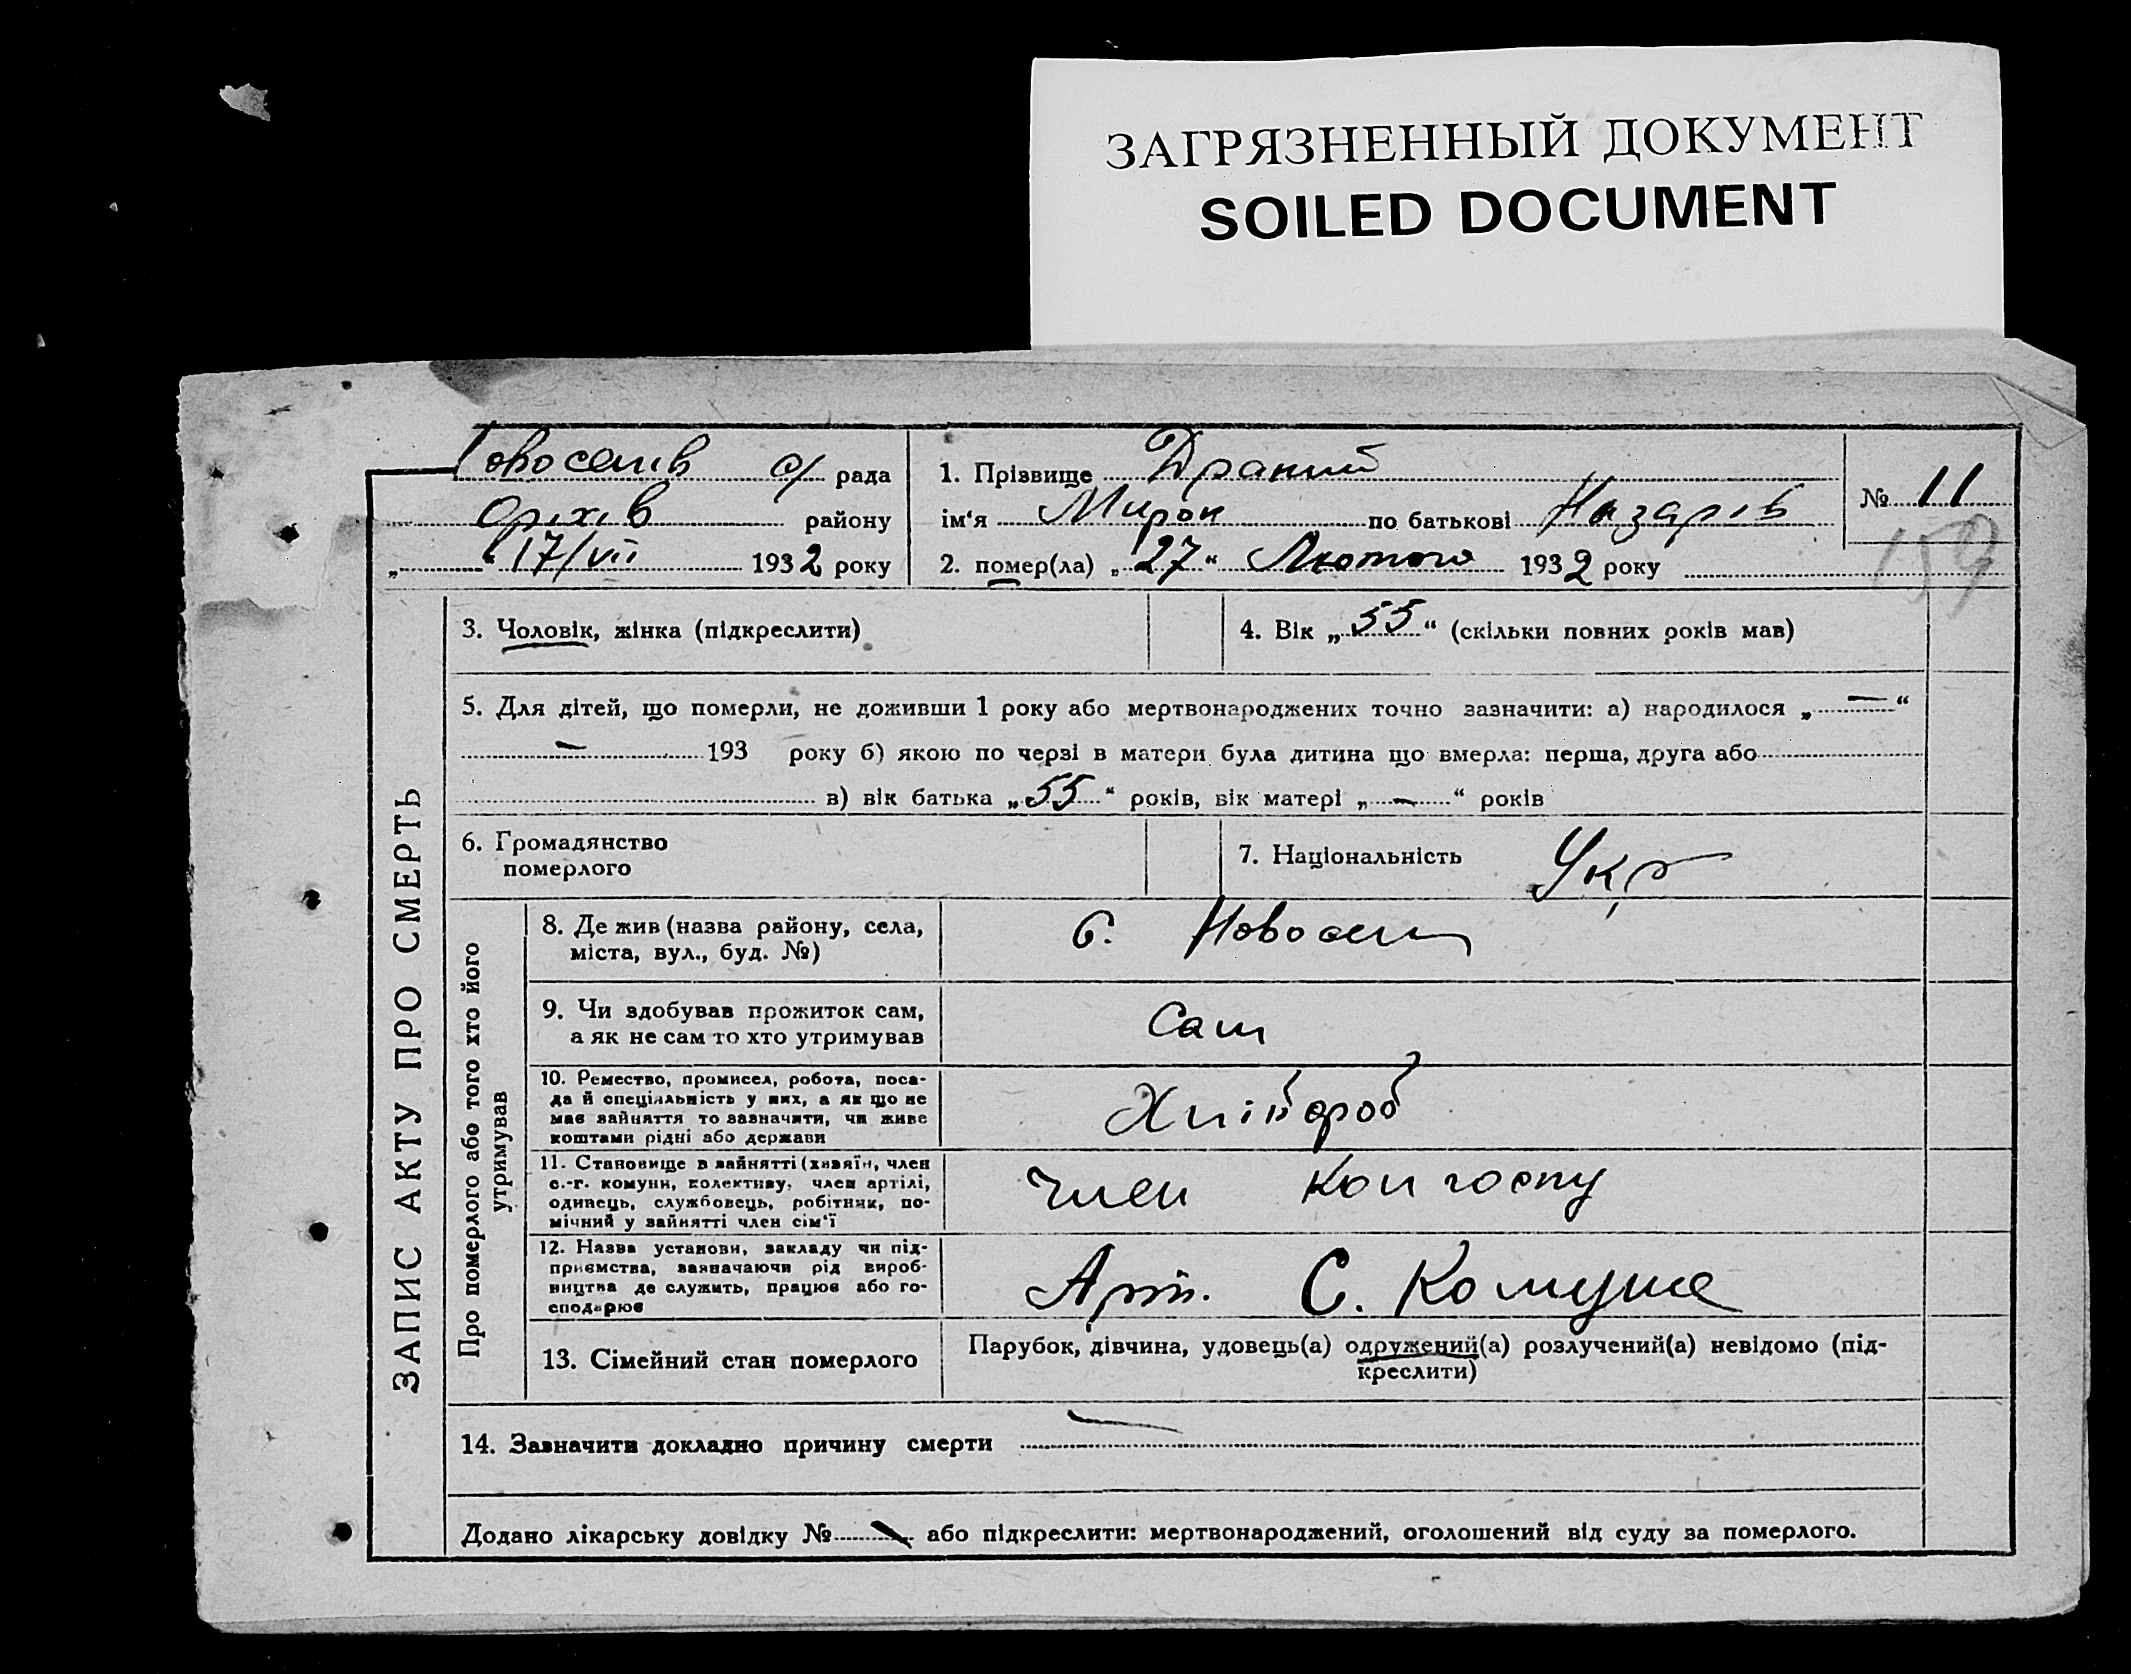 ЗАГРЯЗНЕННЫЙ ДОКУМЕНТ
SOILED DOCUMENT
ЗАПИС АКТУ ПРО СМЕРТЬ
Новоселив с/ рада
Оріхів району
„ 17/VII 1932 року
1. Прізвище Драний
ім‘я Мирон по батькові Назарів
2. помер(ла) „27“ Лютого 1932 року
№ 11
159
3. Чоловік, жінка (підкреслити)
4. Вік „55“ (скільки повних років мав)
5. Для дітей, що померли, не доживши 1 року або мертвонароджених точно зазначити: а) народилося „—“
— 193 року б) якою по черзі в матери була дитина що вмерла: перша, друга або
в) вік батька „55“ років, вік матері „—“ років
6. Громадянство
померлого
7. Національність Укр
Про померлого або того хто його
утримував
8. Де жив (назва району, села,
міста, вул., буд. №)
с. Новосел
9. Чи здобував прожиток сам,
а як не сам то хто утримував
Сам
10. Ремество, промисел, робота, поса-
да й спеціяльність у них, а як що не
має зайняття то зазначити, чи живе
коштами рідні або держави
Хлібороб
11. Становище в зайнятті (хазяїн, член
с.-г. комуни, колективу, член артілі,
одинець, службовець, робітник, по-
мічний у зайнятті член сім‘ї
Член Колгоспу
12. Назва установи, закладу чи під-
приємства, зазначаючи рід вироб-
ництва де служить, працює або го-
сподарює
Арт. С. Комуна
13. Сімейний стан померлого
Парубок, дівчина, удовець(а) одружений(а) розлучений(а) невідомо (під-
креслити)
14. Зазначити докладно причину смерти —
Додано лікарську довідку № — або підкреслити: мертвонароджений, оголошений від суду за померлого.